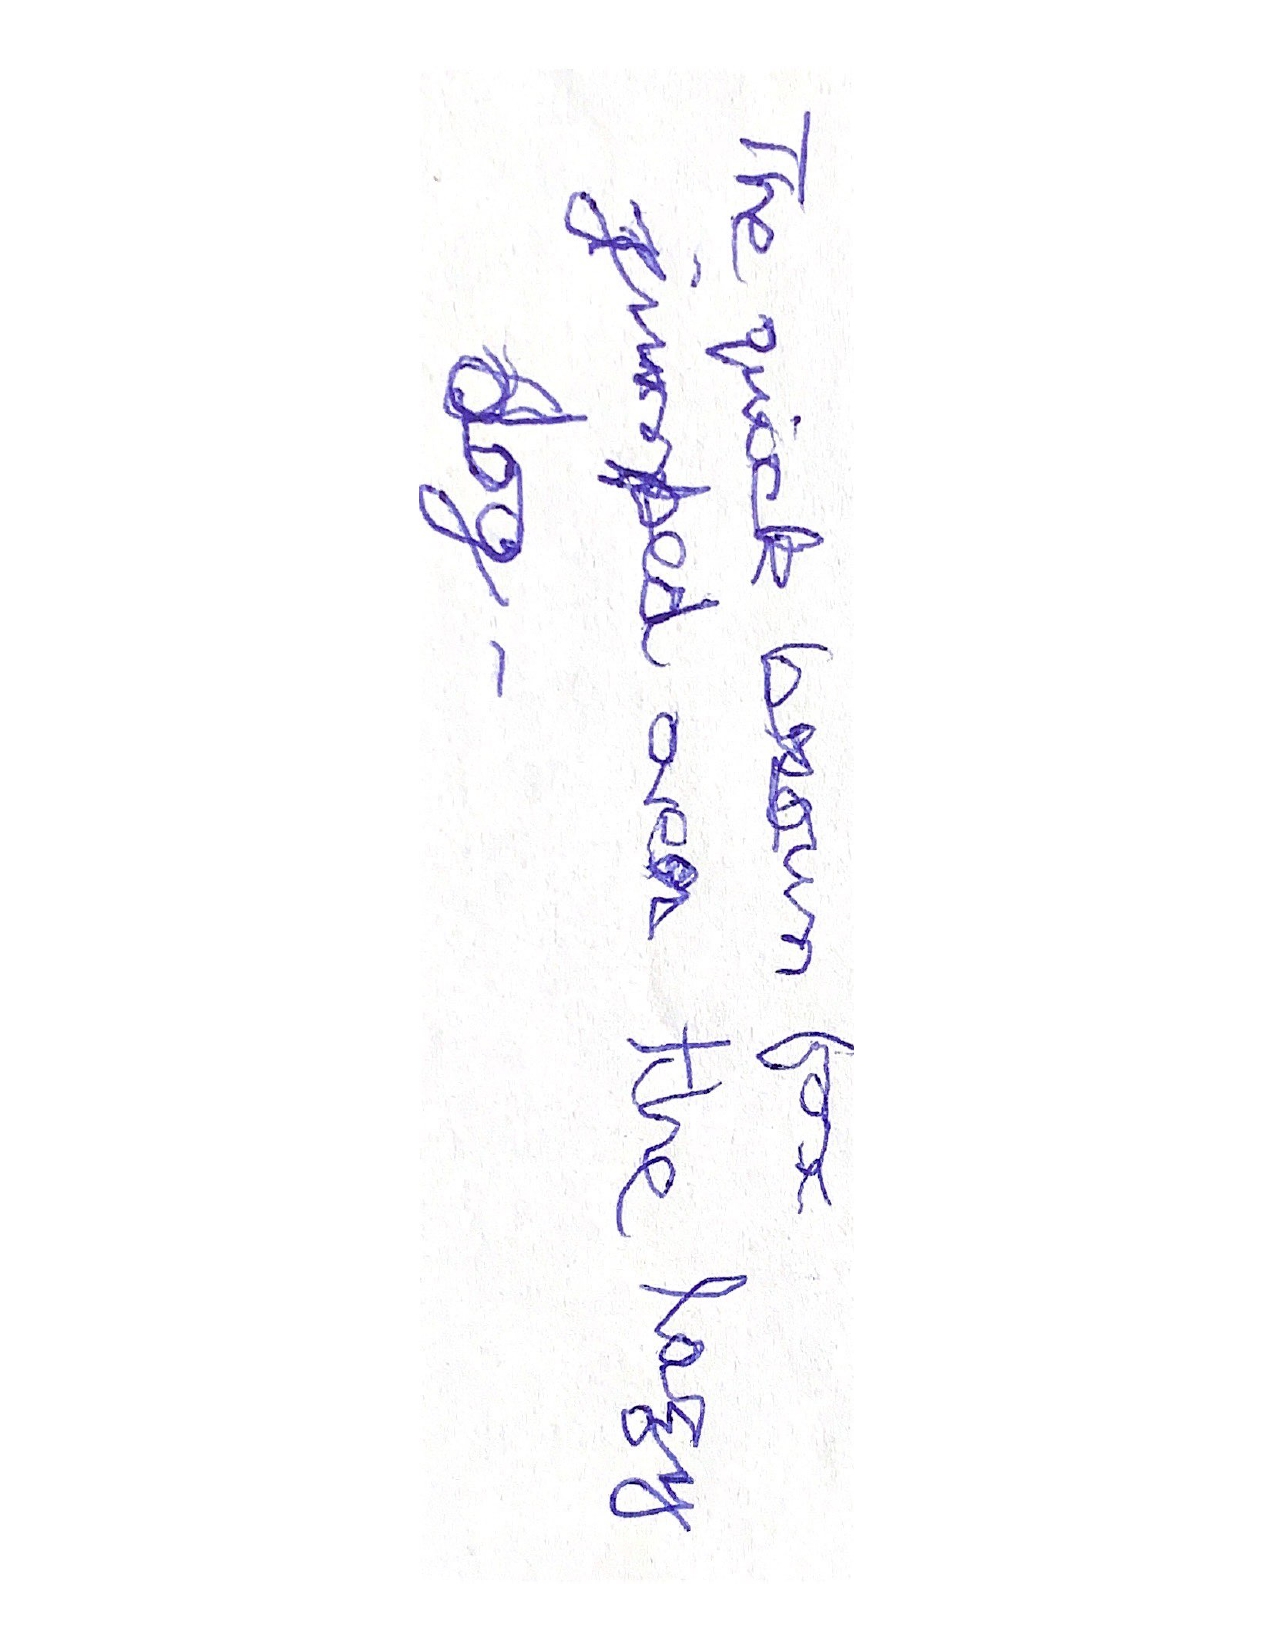 The quick brown fox
jumped over the lazy
dog -